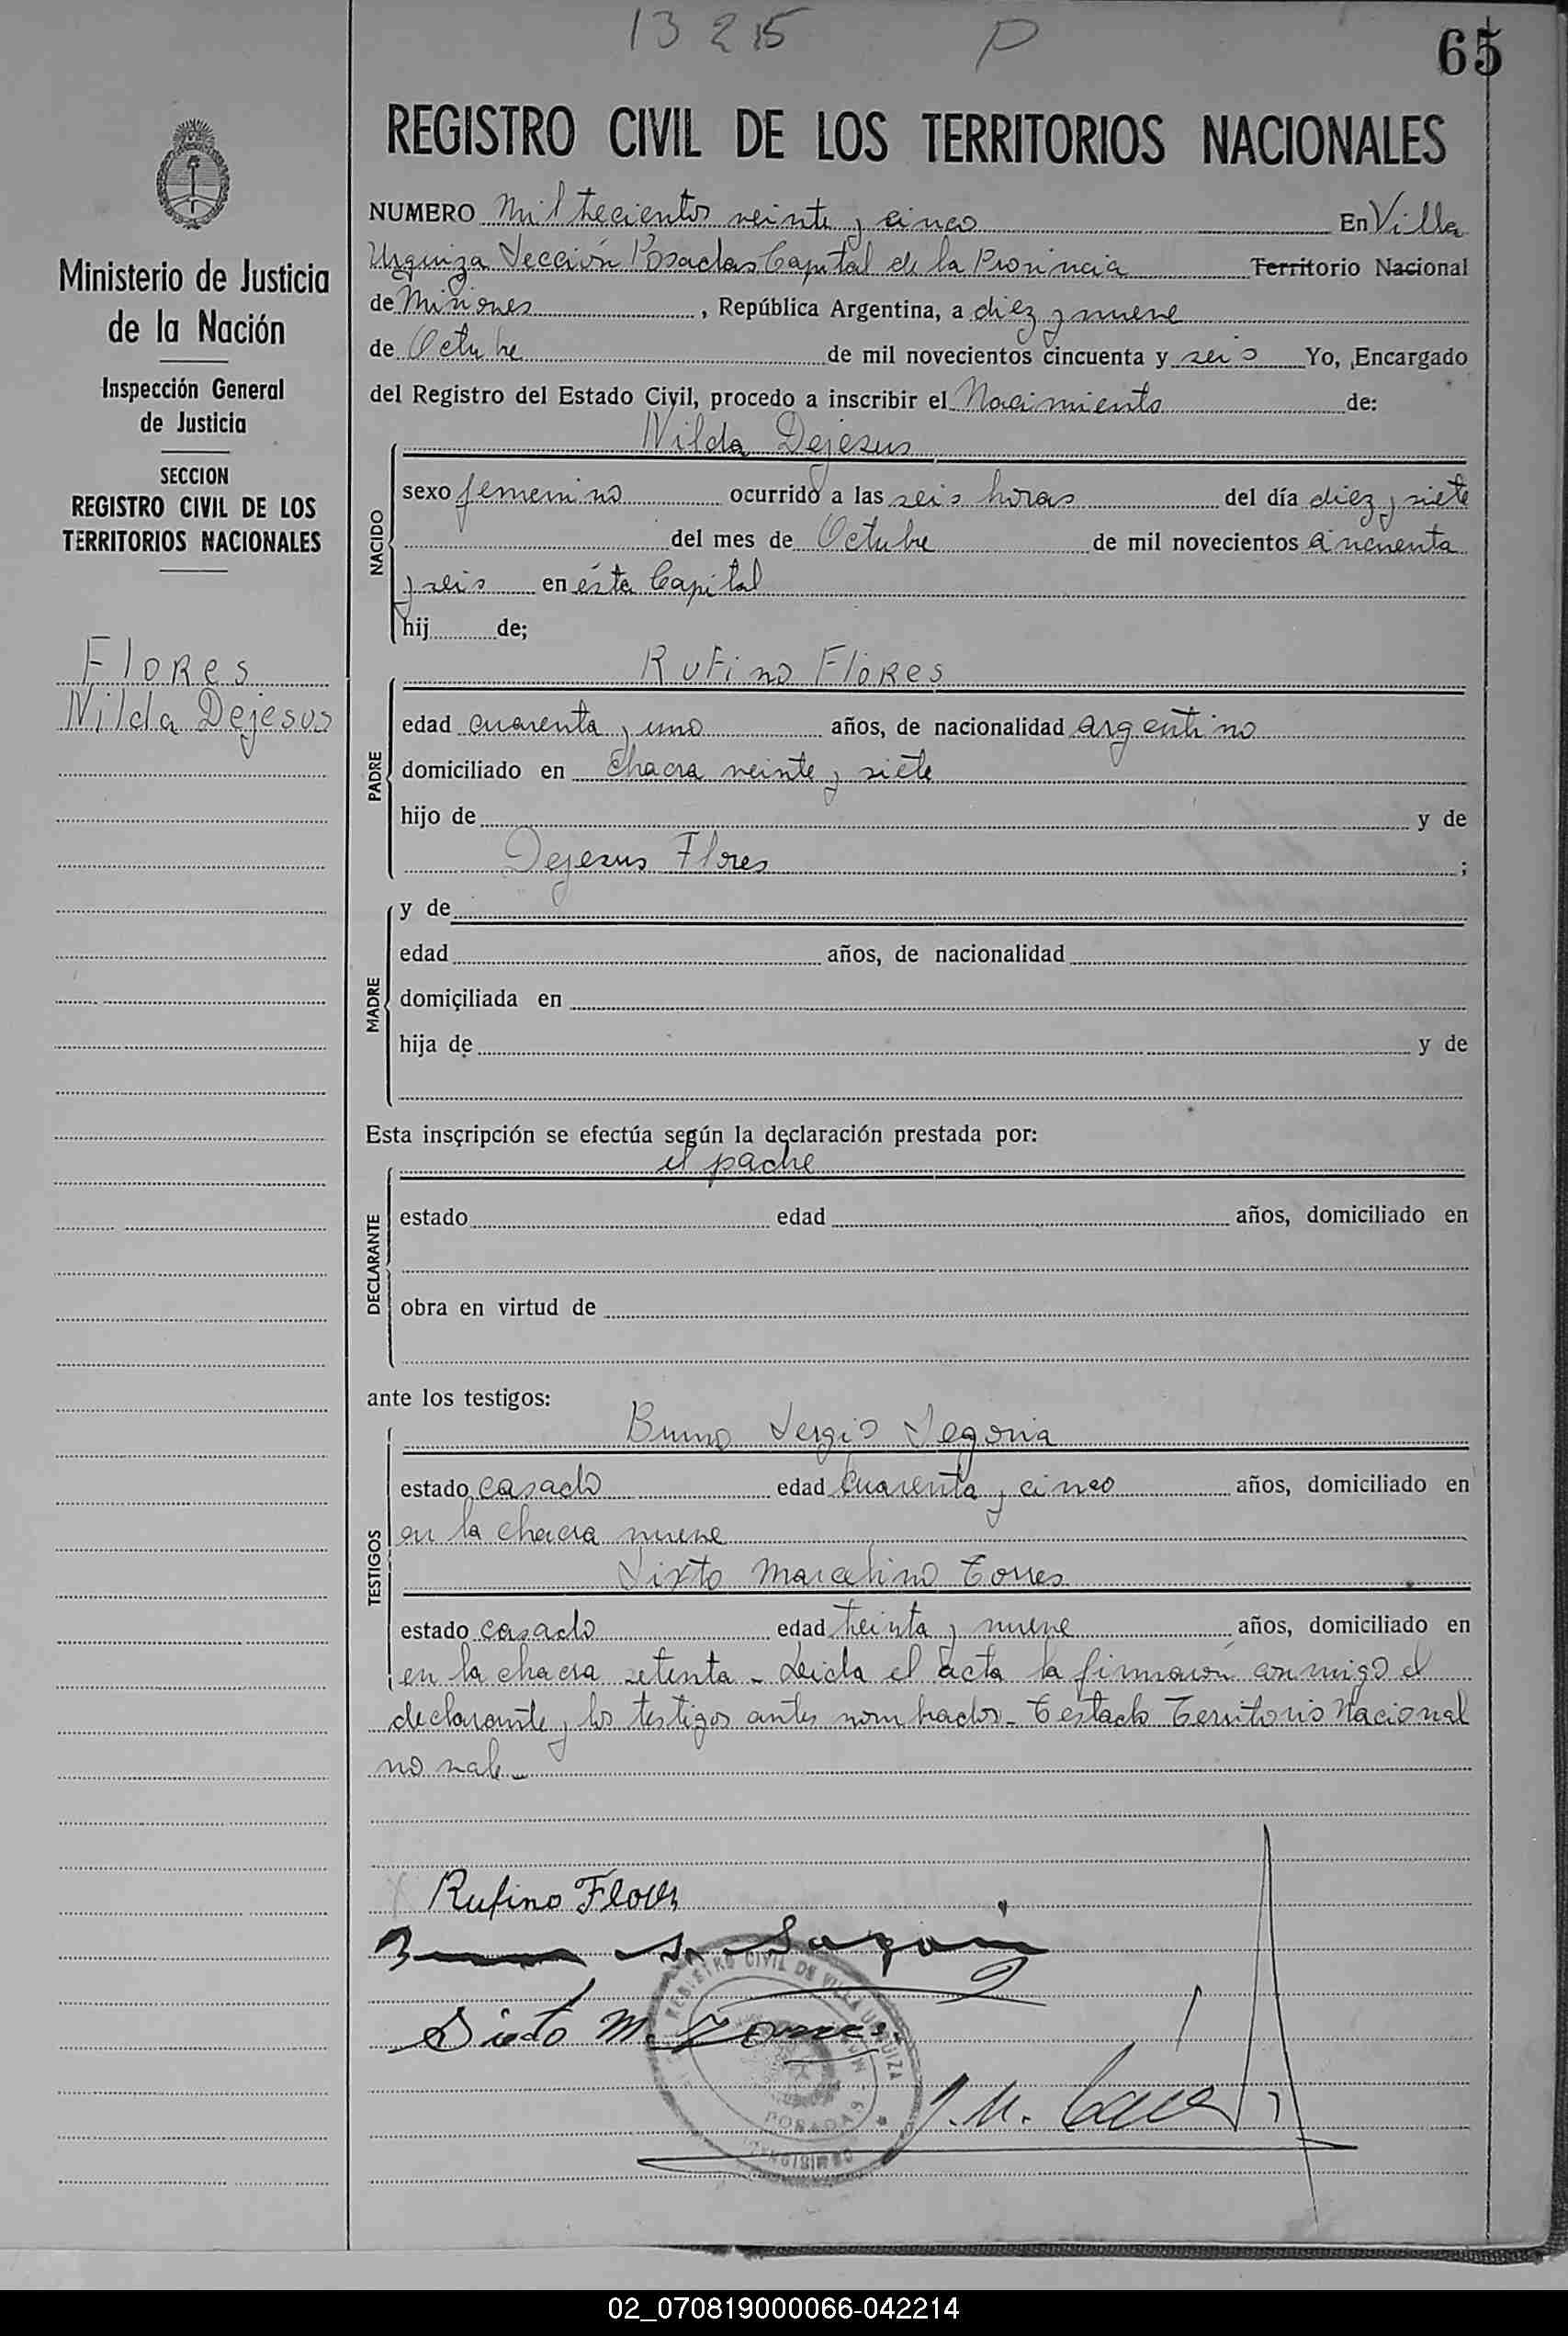 13 2 15 P
65
REGISTRO CIVIL DE LOS TERRITORIOS NACIONALES
Ministerio de Justicia
de la Nación
Inspección General
de Justicia
SECCION
REGISTRO CIVIL DE LOS
TERRITORIOS NACIONALES
Flores
Nilda Dejesus
NUMERO Mil trecientos veinte y cinco En Villa
Urquiza Sección Posadas Capital de la Provincia Territorio Nacional
de Misiones, República Argentina, a diez y nueve
de Octubre de mil novecientos cincuenta y seis Yo, Encargado
del Registro del Estado Civil, procedo a inscribir el Nacimiento de:
Nilda Dejesus
NACIDO
sexo femenino ocurrido a las seis horas del día diez y siete
del mes de Octubre de mil novecientos cincuenta
y seis en ésta Capital
hij de;
Rufino Flores
PADRE
edad cuarenta y uno años, de nacionalidad argentino
domiciliado en chacra veinte y siete
hijo de y de
Dejesus Flores ;
MADRE
y de
edad años, de nacionalidad
domiciliada en
hija de y de
Esta inscripción se efectúa según la declaración prestada por:
el padre
DECLARANTE
estado edad años, domiciliado en
obra en virtud de
ante los testigos:
Bruno Sergio Segovia
TESTIGOS
estado casado edad cuarenta y cinco años, domiciliado en
en la chacra nueve
Sixto Marcelino Torres
estado casado edad treinta y nueve años, domiciliado en
en la chacra setenta - Leida el acta la firmaron conmigo el
declarante y los testigos antes nombrados - Testado Territorio Nacional
no vale -
Rufino Flores
Sixto M. Torres
REGISTRO CIVIL DE VILLA URQUIZA
POSADAS
02_070819000066-042214